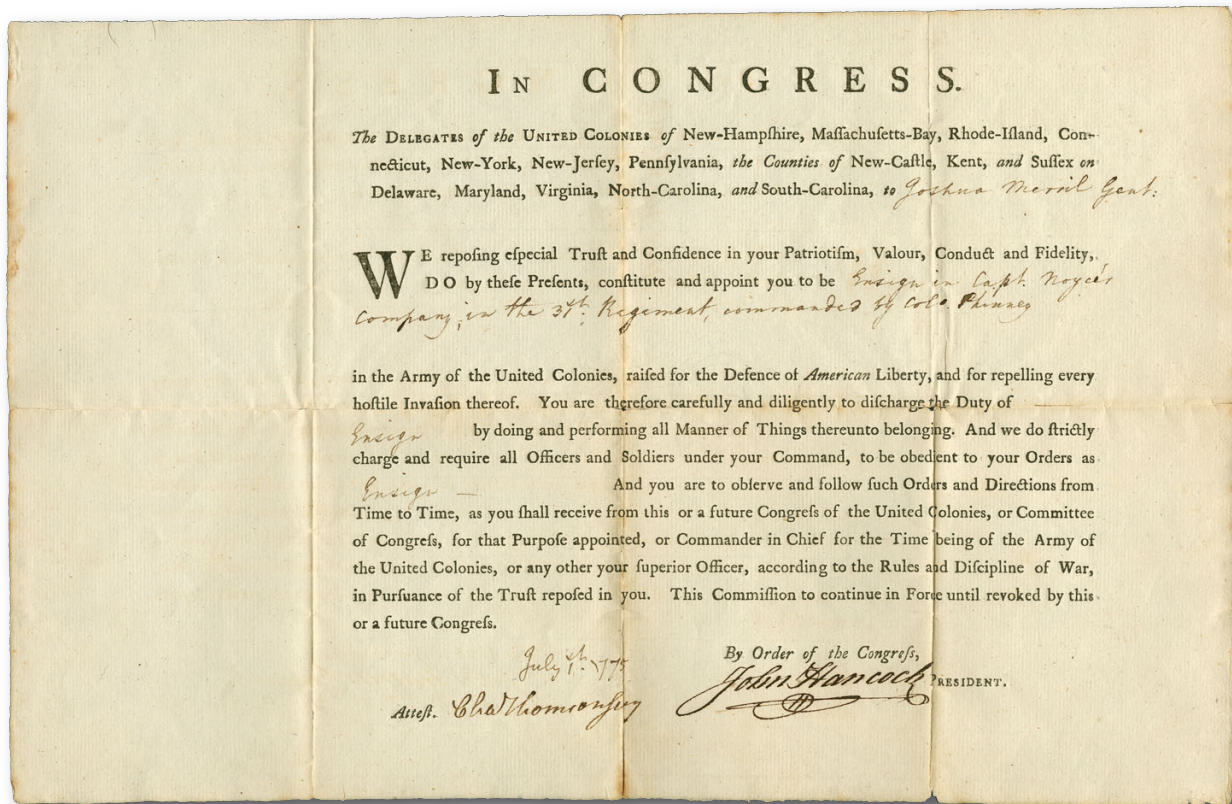 IN CONGRESS.
The DELEGATES of the UNITED COLONIES of New-Hampſhire, Maſſachuſetts-Bay, Rhode-Iſland, Con-
necticut, New-York, New-Jerſey, Pennſylvania, the Counties of New-Caſtle, Kent, and Suſſex on
Delaware, Maryland, Virginia, North-Carolina, and South-Carolina, to Joshua Merril Gent:
WE repoſing eſpecial Truſt and Confidence in your Patriotiſm, Valour, Conduct and Fidelity,
DO by theſe Preſents, conſtitute and appoint you to be Ensign in Capt. Noyce's
Company, in the 31st. Regiment, commanded by Colo. Phinney
in the Army of the United Colonies, raiſed for the Defence of American Liberty, and for repelling every
hoſtile Invaſion thereof. You are therefore carefully and diligently to diſcharge the Duty of
Ensign by doing and performing all Manner of Things thereunto belonging. And we do ſtrictly
charge and require all Officers and Soldiers under your Command, to be obedient to your Orders as
Ensign — And you are to obſerve and follow ſuch Orders and Directions from
Time to Time, as you ſhall receive from this or a future Congreſs of the United Colonies, or Committee
of Congreſs, for that Purpoſe appointed, or Commander in Chief for the Time being of the Army of
the United Colonies, or any other your ſuperior Officer, according to the Rules and Diſcipline of War,
in Purſuance of the Truſt repoſed in you. This Commiſſion to continue in Force until revoked by this
or a future Congreſs.
July 1st. 1775 By Order of the Congreſs,
John Hancock PRESIDENT.
Atteſt. Cha Thomson Secy